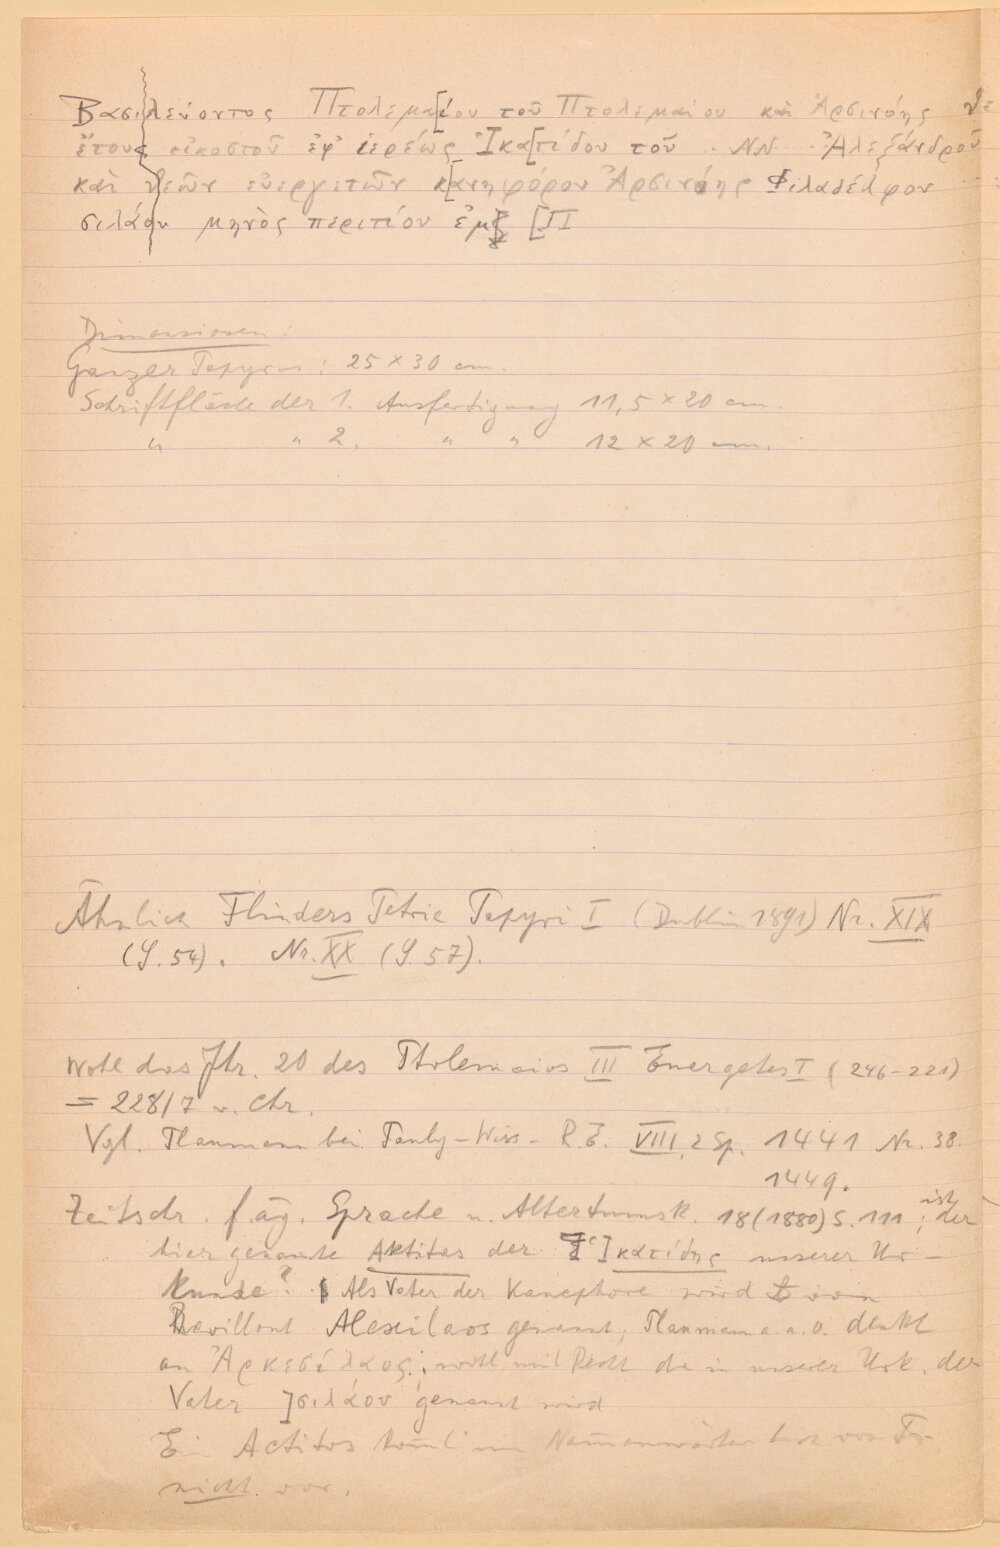 Βασιλεύοντος Πτολεμα[ίου τοῦ Πτολεμαίου καὶ Ἀρσινόης θε
ἔτους εἰκοστοῦ ἐφ' ἱερέως Ἰκα[τίδου τοῦ . NN . Ἀλεξάνδρου
καὶ θεῶν εὐεργετῶν κ[ανηφόρου Ἀρσινόης Φιλαδέλφου
σιλάου μηνὸς περιτίου ἐμ [Π
Dimensionen:
Ganzer Papyrus: 25 × 30 cm.
Schriftfläche der 1. Ausfertigung 11,5 × 20 cm.
" " 2. " " 12 × 20 cm.
Ähnlich Flinders Petrie Papyri I (Dublin 1891) Nr. XIX
(S. 54). Nr. XX (S. 57).
Wohl das Jhr. 20 des Ptolemaios III Euergetes I (246-221)
= 228/7 v. Chr.
Vgl. Plaumann bei Pauly-Wiss- R.E. VIII, 2 Sp. 1441 Nr. 38.
1449.
Zeitschr. f. äg. Sprache u. Altertumsk. 18 (1880) S. 111; ist der
hier genannte Aktitas der ]κατίδης unserer Ur-
kunde? Als Vater der Kanephore wird von
Revillout Alexilaos genannt, Plaumann a.a.O. denkt
an Ἀρκεσίλαος; wohl mit Recht da in unserer Urk. der
Vater ]σιλάου genannt wird
Ein Actitos kommt im Namenwörterbuch von Pr
nicht vor.